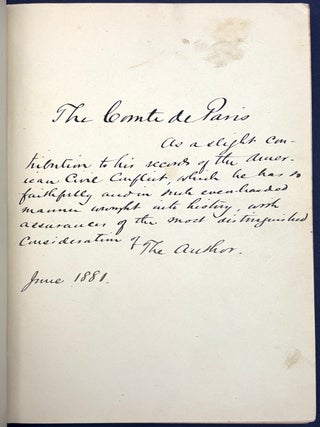 The Comte de Paris
As a slight con-
tribution to his records of the Amer-
ican Civil Conflict, which he has so
faithfully and in such evenhanded
manner wrought into history, with
assurances of the most distinguished
consideration of The Author.
June 1881.